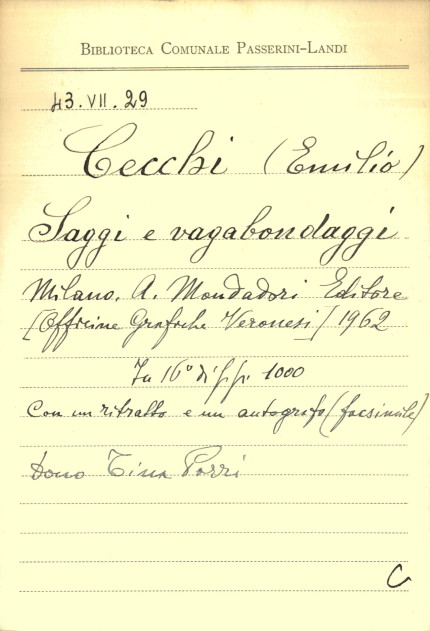 BIBLIOTECA COMUNALE PASSERINI-LANDI
43.VII.29
Cecchi (Emilio)
Saggi e vagabondaggi
Milano. A. Mondadori Editore
(Officine Grafiche Veronesi) 1962
In 16° di pp. 1000
Con un ritratto e un autografo (facsimile)
Dono Tina Porri
C